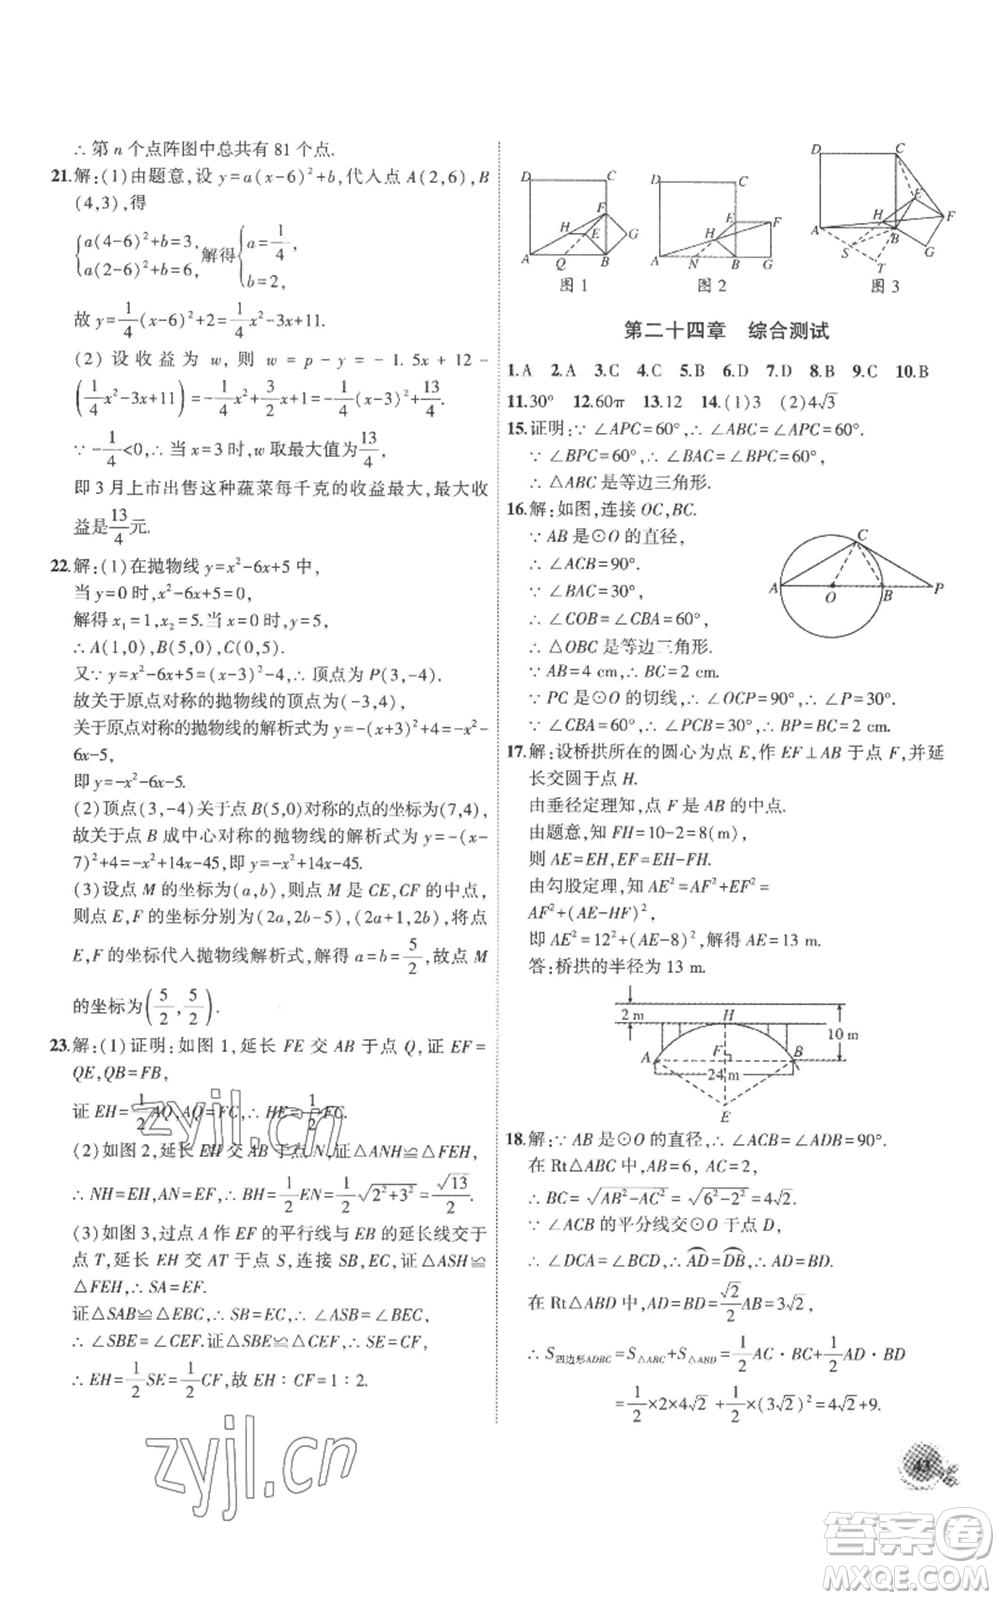 ∴ 第 n 个点阵图中总共有 81 个点.
21.解:(1)由题意,设 y=a(x-6)²+b,代入点 A(2,6),B
(4,3),得
{a(4-6)²+b=3, a(2-6)²+b=6, 解得{a=1/4, b=2,
故 y=1/4(x-6)²+2=1/4x²-3x+11.
(2) 设 收 益 为 w, 则 w = p - y = - 1. 5x + 12 -
(1/4x²-3x+11)=-1/4x²+3/2x+1=-1/4(x-3)²+13/4.
∵ -1/4<0,∴ 当 x=3 时,w 取最大值为13/4
即 3 月上市出售这种蔬菜每千克的收益最大,最大收
益是13/4元.
22.解:(1)在抛物线 y=x²-6x+5 中,
当 y=0 时,x²-6x+5=0,
解得 x₁=1,x₂=5.当 x=0 时,y=5,
∴ A(1,0),B(5,0),C(0,5).
又∵ y=x²-6x+5=(x-3)²-4,∴ 顶点为 P(3,-4).
故关于原点对称的抛物线的顶点为(-3,4),
关于原点对称的抛物线的解析式为 y=-(x+3)²+4=-x²-
6x-5,
即 y=-x²-6x-5.
(2)顶点(3,-4)关于点 B(5,0)对称的点的坐标为(7,4),
故关于点 B 成中心对称的抛物线的解析式为 y=-(x-
7)²+4=-x²+14x-45,即 y=-x²+14x-45.
(3)设点 M 的坐标为(a,b),则点 M 是 CE,CF 的中点,
则点 E,F 的坐标分别为(2a,2b-5),(2a+1,2b),将点
E,F 的坐标代入抛物线解析式,解得 a=b=5/2,故点 M
的坐标为(5/2,5/2).
23.解:(1)证明:如图 1,延长 FE 交 AB 于点 Q,证 EF=
QE,QB=FB,
证 EH=1/2AQ,AQ=FC,∴ HE=1/2FC.
(2)如图 2,延长 EH 交 AB 于点 N,证△ANH≌△FEH,
∴ NH=EH,AN=EF,∴ BH=1/2EN=1/2√(2²+3²)=√13/2.
(3)如图 3,过点 A 作 EF 的平行线与 EB 的延长线交于
点 T,延长 EH 交 AT 于点 S,连接 SB,EC,证△ASH≌
△FEH,∴ SA=EF.
证△SAB≌△EFC,∴ SB=EC,∴ ∠ASB=∠BEC,
∴ ∠SBE=∠CEF.证△SBE≌△CEF,∴ SE=CF,
∴ EH=1/2SE=1/2CF,故 EH∶CF=1∶2.
D C F H E G A Q B
图 1
D C E F H A N B G
图 2
D C E H F A B S T G
图 3
第二十四章 综合测试
1.A 2.A 3.C 4.C 5.B 6.D 7.D 8.B 9.C 10.B
11.30° 12.60π 13.12 14.(1)3 (2)4√3
15.证明:∵ ∠APC=60°,∴ ∠ABC=∠APC=60°.
∵ ∠BPC=60°,∴ ∠BAC=∠BPC=60°,
∴ △ABC 是等边三角形.
16.解:如图,连接 OC,BC.
∵ AB 是⊙O 的直径,
∴ ∠ACB=90°.
∵ ∠BAC=30°,
∴ ∠COB=∠CBA=60°,
∴ △OBC 是等边三角形.
∵ AB=4 cm,∴ BC=2 cm.
∵ PC 是⊙O 的切线,∴ ∠OCP=90°,∴ ∠P=30°.
∵ ∠CBA=60°,∴ ∠PCB=30°,∴ BP=BC=2 cm.
A O B P C
17.解:设桥拱所在的圆心为点 E,作 EF⊥AB 于点 F,并延
长交圆于点 H.
由垂径定理知,点 F 是 AB 的中点.
由题意,知 FH=10-2=8(m),
则 AE=EH,EF=EH-HF.
由勾股定理,知 AE²=AF²+EF²=
AF²+(AE-HF)²,
即 AE²=12²+(AE-8)²,解得 AE=13 m.
答:桥拱的半径为 13 m.
2 m H 10 m A F B 24 m E
18.解:∵ AB 是⊙O 的直径,∴ ∠ACB=∠ADB=90°.
在 Rt△ABC 中,AB=6, AC=2,
∴ BC=√(AB²-AC²)=√(6²-2²)=4√2.
∵ ∠ACB 的平分线交⊙O 于点 D,
∴ ∠DCA=∠BCD,∴ A͡D=D͡B,∴ AD=BD.
在 Rt△ABD 中,AD=BD=√2/2AB=3√2,
∴ S四边形ADBC=S△ABC+S△ABD=1/2AC·BC+1/2AD·BD
=1/2×2×4√2+1/2×(3√2)²=4√2+9.
43
zyjl.cn
zyjl.cn
答案卷
MXQE.COM